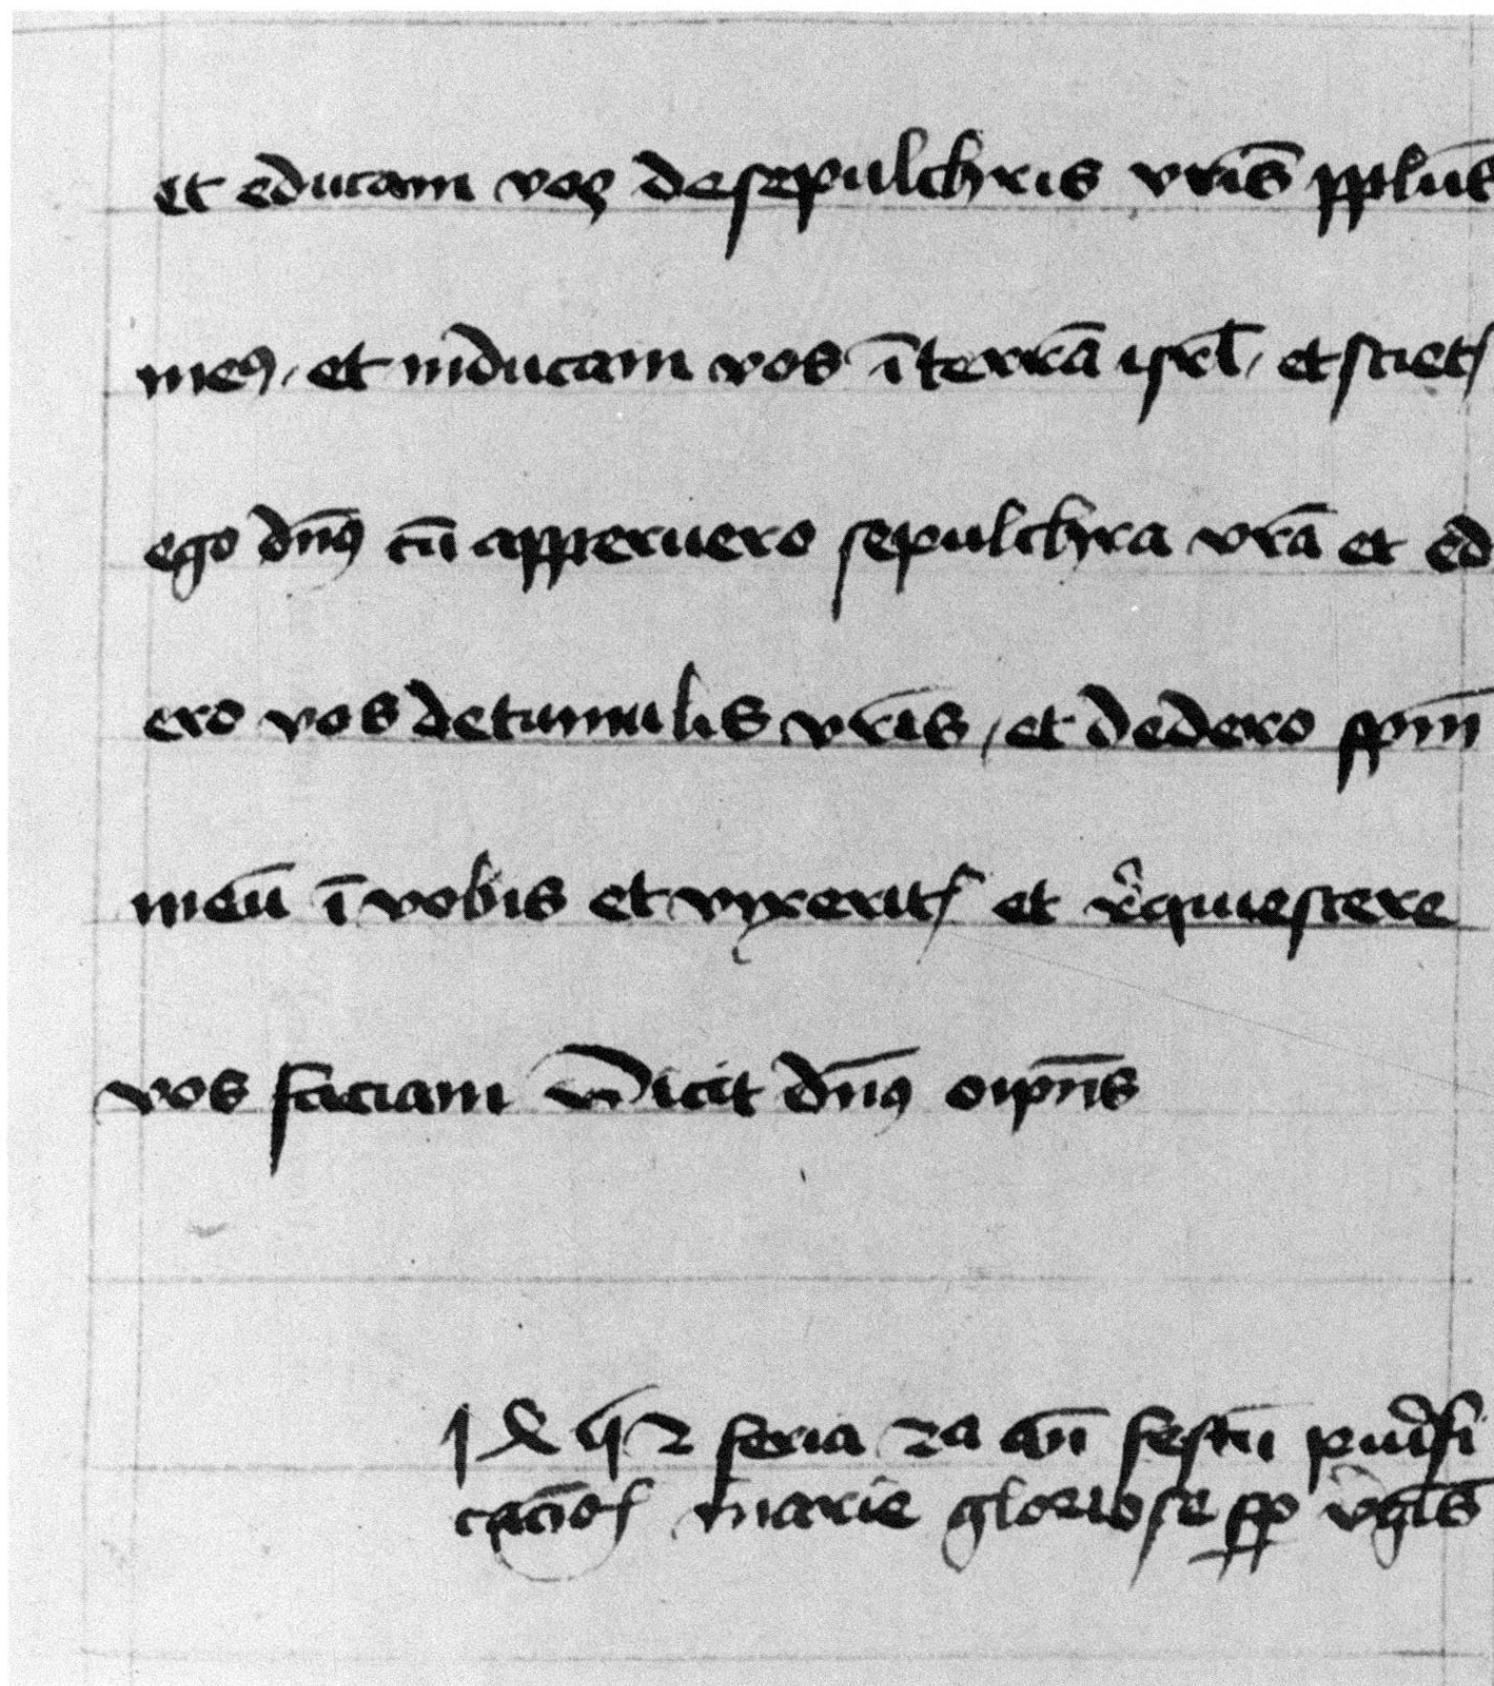 et educam vos de sepulchris vr̄is pplūs
meꝰ / et inducam vos ī terrā isrl̄ / et scietꝭ
ego dn̄ꝰ cū apperuero sepulchra vr̄a et ed
ero vos de tumulis vr̄is / et dedero spm̄
meū ī vobis et vixeritꝭ et reͥquiescere
vos faciam dicit dn̄ꝰ oīpn̄s
feria 2a an̄ festū purifi
cacōīs marie gloriose vgīs